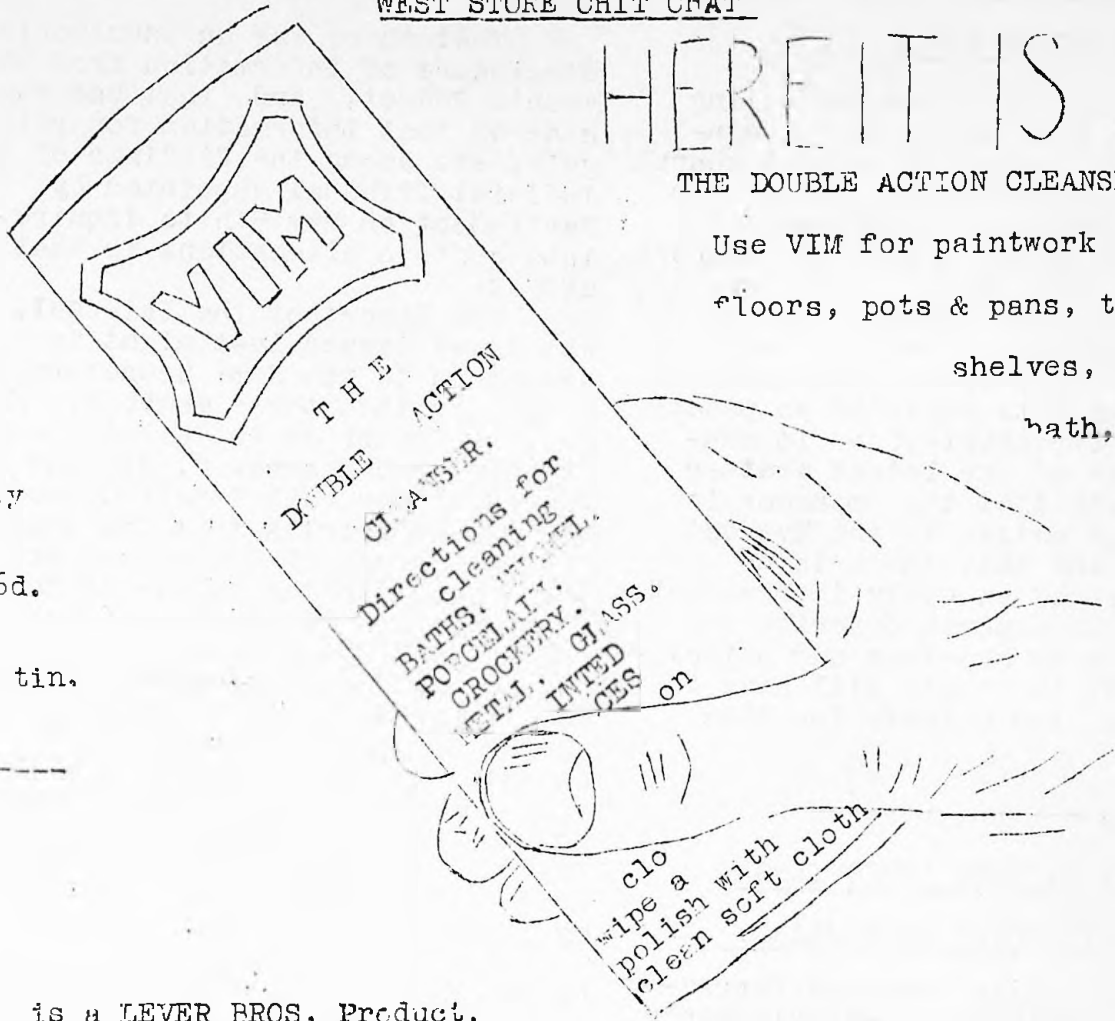 WEST STORE CHIT CHAT
HERE IT IS
THE DOUBLE ACTION CLEANS
Use VIM for paintwork
floors, pots & pans, t
shelves,
bath,
VIM
T H E
DOUBLE ACTION
CLEANSER.
Directions for
cleaning
BATHS. ENAMEL.
PORCELAIN.
CROCKERY.
METAL. GLASS.
INTED
CES on
clo
wipe a
polish with
clean soft cloth
y
6d.
tin.
is a LEVER BROS. Product.